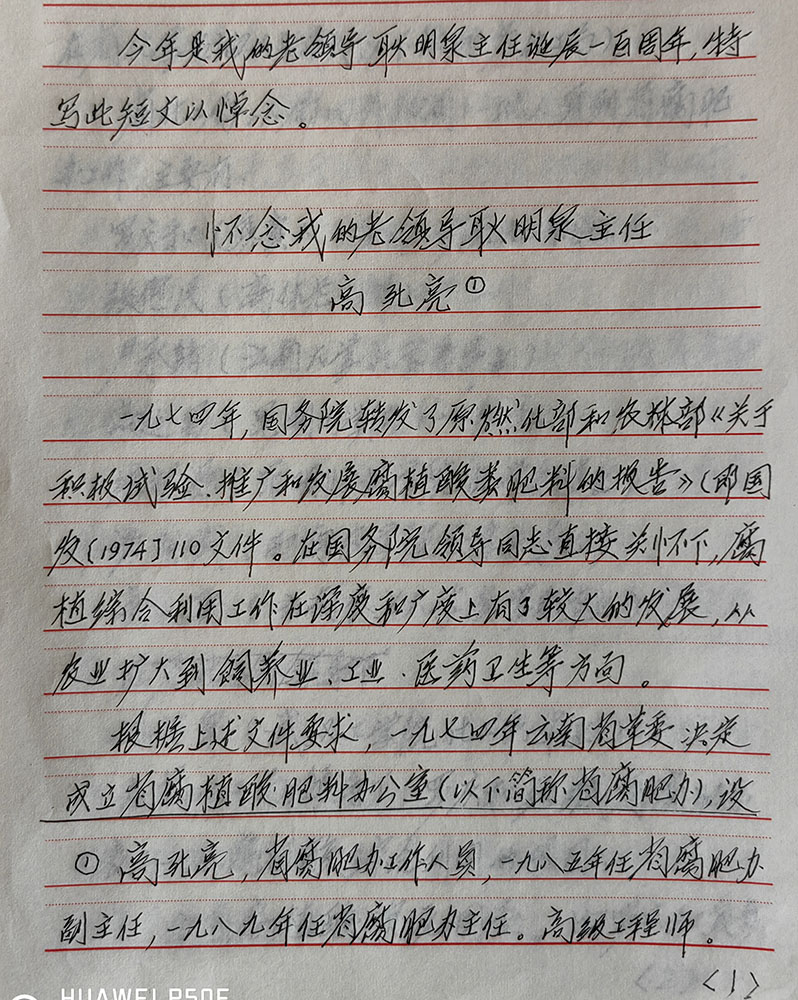 今年是我的老领导耿明泉主任诞辰一百周年,特
写此短文以悼念。
怀念我的老领导耿明泉主任
高 亮①
一九七四年,国务院转发了原燃化部和农林部《关于
积极试验、推广和发展腐植酸类肥料的报告》(即国
发[1974]110文件。在国务院领导同志直接关怀下,腐
植综合利用工作在深度和广度上有了较大的发展,从
农业扩大到饲养业、工业、医药卫生等方向。
根据上述文件要求,一九七四年云南省革委决定
成立省腐植酸肥料办公室(以下简称省腐肥办),设
① 高 亮,省腐肥办工作人员,一九八五年任省腐肥办
副主任,一九八九年任省腐肥办主任。高级工程师。
<1>
HUAWEI P50E